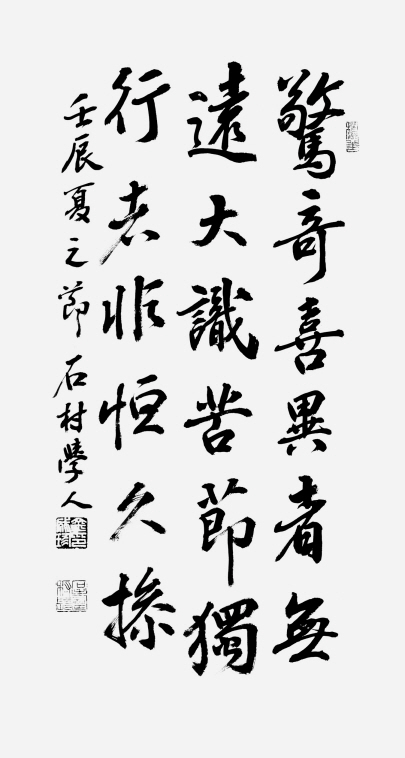 驚奇喜異者無
遠大識苦節獨
行者非恒久操
壬辰夏之節 石村學人